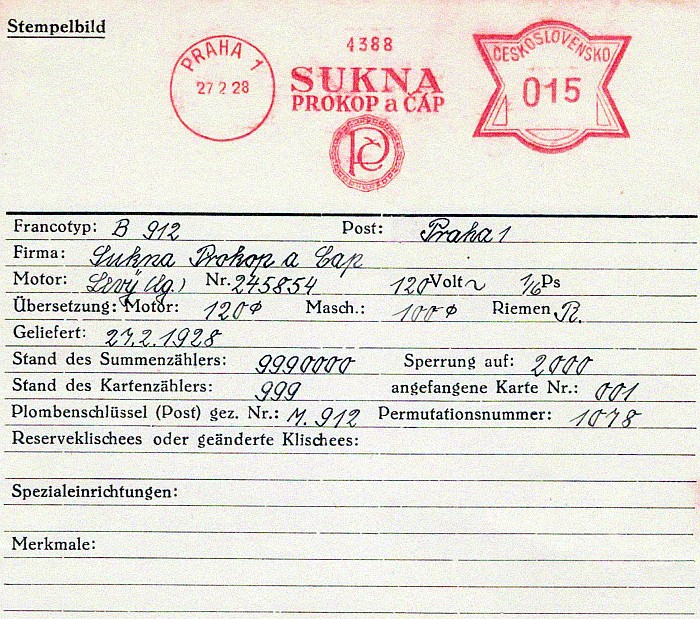 Stempelbild
PRAHA 1
27 2 28
4388
SUKNA
PROKOP a ČÁP
PČ
ČESKOSLOVENSKO
015
Francotyp: B 912 Post: Praha 1
Firma: Sukna Prokop a Cap
Motor: Levý (Lg.) Nr. 245854 120 Volt ~ 1/6 Ps
Übersetzung: Motor: 120 ϕ Masch.: 100 ϕ Riemen R.
Geliefert: 27.2.1928
Stand des Summenzählers: 9990000 Sperrung auf: 2000
Stand des Kartenzählers: 999 angefangene Karte Nr.: 001
Plombenschlüssel (Post) gez. Nr.: M. 912 Permutationsnummer: 1078
Reserveklischees oder geänderte Klischees:
Spezialeinrichtungen:
Merkmale: